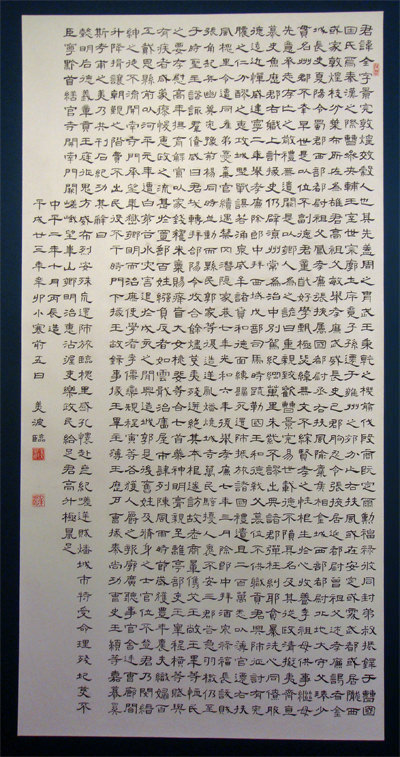 君諱全字景完敦煌效穀人也其先蓋周之胄武王秉乾之機翦伐殷商既定爾勳福祿攸同封弟叔振鐸于曹國
因氏焉秦漢之際曹參夾輔王室世宗廓土斥竟子孫遷于雍州之郊分止右扶風或在安定或處武都或居隴西
或家敦煌枝分葉布所在為雄君高祖父敏舉孝廉武威長史巴郡朐忍令張掖居延都尉曾祖父述孝廉謁者金
城長史夏陽令蜀郡西部都尉祖父鳳孝廉張掖屬國都尉丞右扶風隃麋侯相金城西部都尉北地大守父琫少
貫名州郡不幸早世是以位不副德君童齔好學甄極毖緯無文不綜賢孝之性根生於心收養季祖母供事繼母
先意承志存亡之敬禮無遺闕是以鄉人為之諺曰重親致歡曹景完易世載德不隕其名及其從政清擬夷齊直
慕史魚歷郡右職上計掾史仍辟涼州常為治中別駕紀綱萬里朱紫不謬出典諸郡彈枉糾邪貪暴洗心同僚服德
遠近憚威建寧二年舉孝廉除郎中拜西域戊部司馬時疏勒國王和德弒父篡位不供職貢君興師征討有吮
膿之仁分醪之惠攻城野戰謀若涌泉威牟諸賁和德面縛歸死還師振旅諸國禮遺且二百萬悉以薄官遷右扶
風槐里令遭同產弟憂棄官續遇禁罔潛隱家巷七年光和六年復舉孝廉七年三月除郎中拜酒泉祿福長訞賊
張角起兵幽冀兗豫荊楊同時並動而縣民郭家等復造逆亂燔燒城寺萬民騷擾人褱不安三郡告急羽檄仍至
于時聖主諮諏群僚咸曰君哉轉拜郃陽令收合餘燼芟夷殘迸絕其本根遂訪故老商量儁艾王敞王畢等恤民
之要存慰高年撫育鰥寡以家錢糴米粟賜癃盲大女桃斐等合七首藥神明膏親至離亭部吏王皋程橫等賦與
有疾者咸蒙瘳悛惠政之流甚於置郵百姓繈負反者如雲戢治廧屋市肆列陳風雨時節歲獲豐年農夫織婦百
工戴恩縣前以河平元年遭白茅谷水災害退於戊亥之間興造城郭是後舊姓及修身之士官位不登君乃閔縉
紳之徒不濟開南寺門承望華嶽鄉明而治庶使學者李儒欒規程寅等各獲人爵之報廓廣聽事官舍廷曹廊閤
升降揖讓朝覲之階費不出民役不干時門下掾王敞錄事掾王畢主簿王歷戶曹掾秦尚功曹史王顓等嘉慕奚
斯考甫之美乃共刊石紀功其辭曰
懿明后德義章貢王庭征鬼方威布烈安殊荒還師旅臨槐里感孔懷赴喪紀嗟逆賊燔城市特受命理殘圮芟不
臣寧黔首繕官寺開南門闕嵯峨望華山鄉明治惠沾渥吏樂政民給足君高升極鼎足
中平二年十月丙辰造
平成廿三年辛卯小寒前五日 美波臨